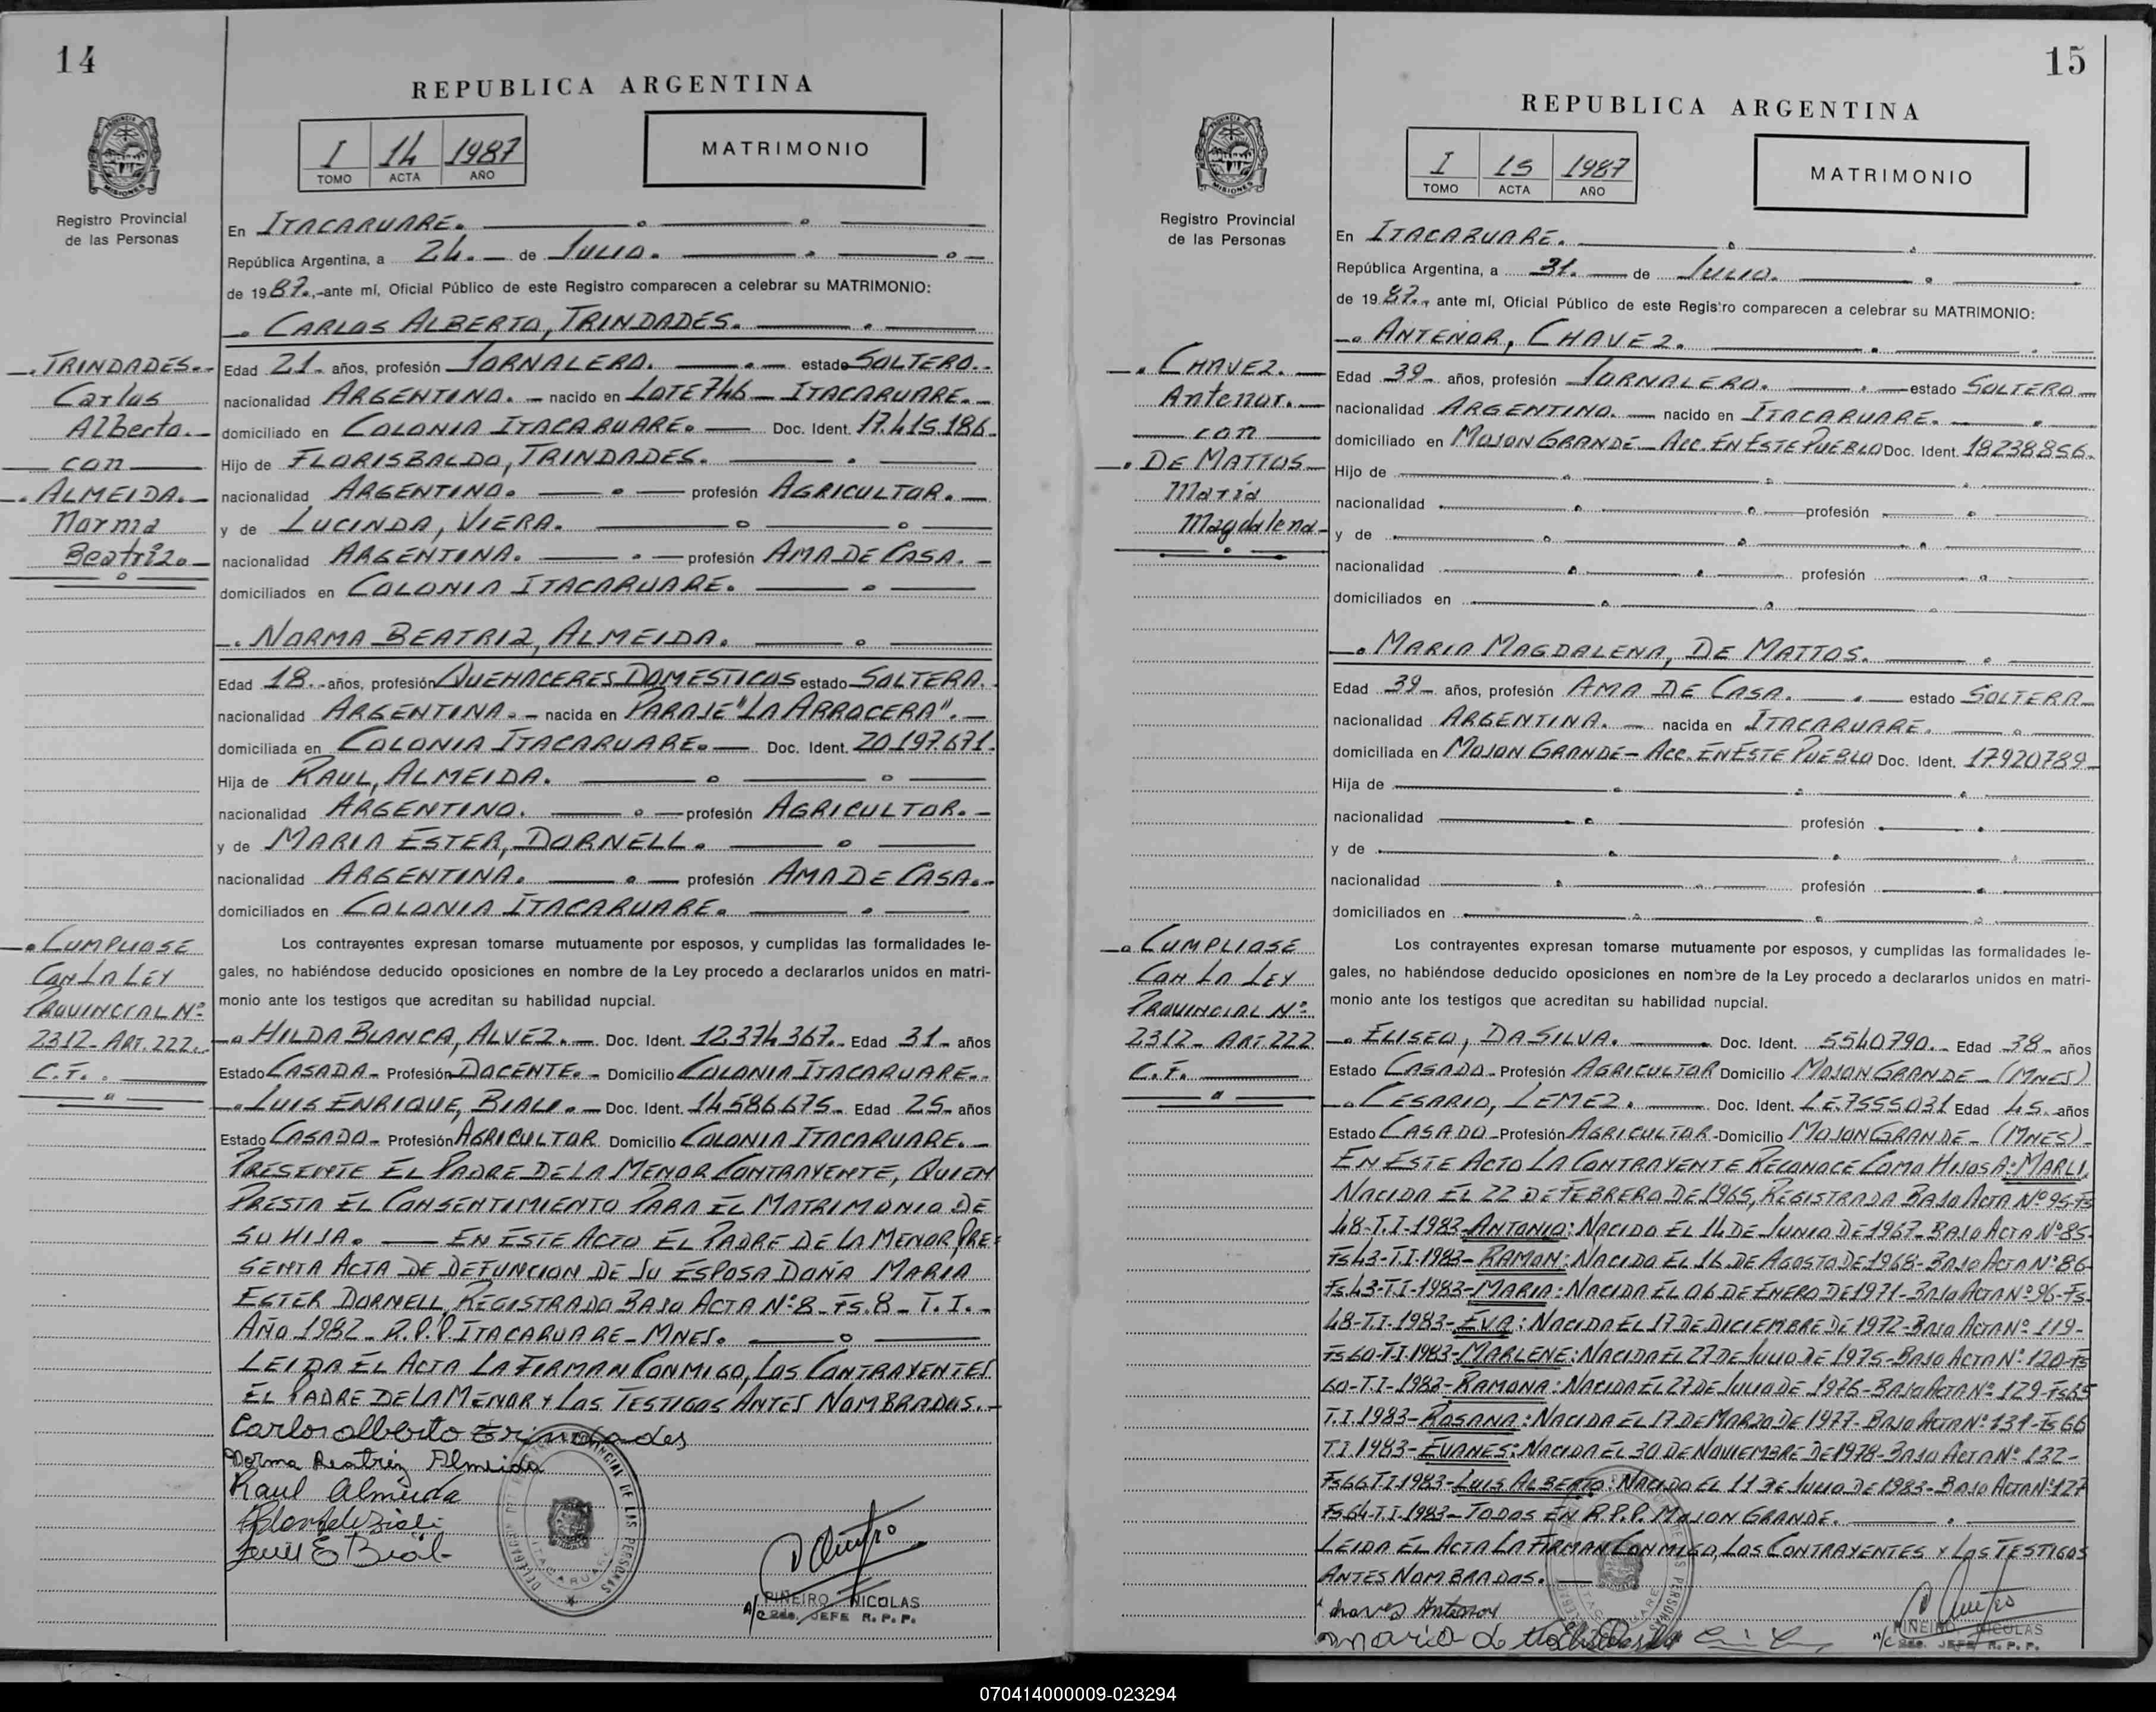 14
REPUBLICA ARGENTINA
PROVINCIA DE
MISIONES
I 14 1987
TOMO ACTA AÑO
MATRIMONIO
Registro Provincial
de las Personas
En ITACARUARE.
República Argentina, a 24. de JULIO.
de 1987.,-ante mí, Oficial Público de este Registro comparecen a celebrar su MATRIMONIO:
CARLOS ALBERTO, TRINDADES.
TRINDADES.
Carlos
Alberto.
con
ALMEIDA.
Norma
Beatriz
Edad 21- años, profesión JORNALERO. estado SOLTERO.
nacionalidad ARGENTINO. - nacido en LOTE 746 - ITACARUARE.
domiciliado en COLONIA ITACARUARE. Doc. Ident. 17.415.186.
Hijo de FLORISBALDO, TRINDADES.
nacionalidad ARGENTINO. profesión AGRICULTOR.
y de LUCINDA, VIERA.
nacionalidad ARGENTINA. profesión AMA DE CASA.
domiciliados en COLONIA ITACARUARE.
NORMA BEATRIZ, ALMEIDA.
Edad 18.-años, profesión QUEHACERES DOMESTICOS estado SOLTERA.
nacionalidad ARGENTINA. - nacida en PARAJE "LA ARROCERA".
domiciliada en COLONIA ITACARUARE. Doc. Ident. 20.197.671.
Hija de RAUL, ALMEIDA.
nacionalidad ARGENTINO. profesión AGRICULTOR.
y de MARIA ESTER, DORNELL.
nacionalidad ARGENTINA. profesión AMA DE CASA.
domiciliados en COLONIA ITACARUARE.
Los contrayentes expresan tomarse mutuamente por esposos, y cumplidas las formalidades le-
gales, no habiéndose deducido oposiciones en nombre de la Ley procedo a declararlos unidos en matri-
monio ante los testigos que acreditan su habilidad nupcial.
CUMPLIOSE
CON LA LEY
PROVINCIAL Nº
2312- ART. 222.
C.F.
HILDA BLANCA, ALVEZ. Doc. Ident. 12.374.367. Edad 31- años
Estado CASADA- Profesión DOCENTE. - Domicilio COLONIA ITACARUARE.
LUIS ENRIQUE, BIALI. Doc. Ident. 14.586.675- Edad 25- años
Estado CASADO- Profesión AGRICULTOR Domicilio COLONIA ITACARUARE.
PRESENTE EL PADRE DE LA MENOR CONTRAYENTE, QUIEN
PRESTA EL CONSENTIMIENTO PARA EL MATRIMONIO DE
SU HIJA. EN ESTE ACTO EL PADRE DE LA MENOR PRE=
SENTA ACTA DE DEFUNCION DE SU ESPOSA DOÑA MARIA
ESTER DORNELL, REGISTRADO BAJO ACTA Nº8-FS.8- T.I.-
AÑO 1982- R.P.P. ITACARUARE-MNES.
LEIDA EL ACTA LA FIRMAN CONMIGO, LOS CONTRAYENTES
EL PADRE DE LA MENOR Y LOS TESTIGOS ANTES NOMBRADOS.
Carlos alberto Trindades
Norma Beatriz Almeida
Raul Almeida
Luis E Biali
PIÑEIRO NICOLAS
A/C 2do. JEFE R.P.P.
15
REPUBLICA ARGENTINA
PROVINCIA DE
MISIONES
I 15 1987
TOMO ACTA AÑO
MATRIMONIO
Registro Provincial
de las Personas
En ITACARUARE.
República Argentina, a 31. de JULIO.
de 1987., ante mí, Oficial Público de este Registro comparecen a celebrar su MATRIMONIO:
ANTENOR, CHAVEZ.
CHAVEZ.
Antenor.
con
DE MATTOS
Maria
Magdalena
Edad 39- años, profesión JORNALERO. estado SOLTERO
nacionalidad ARGENTINO. nacido en ITACARUARE.
domiciliado en MOJON GRANDE- ACC. EN ESTE PUEBLO Doc. Ident. 18238856.
Hijo de
nacionalidad profesión
y de
nacionalidad profesión
domiciliados en
MARIA MAGDALENA, DE MATTOS.
Edad 39- años, profesión AMA DE CASA. estado SOLTERA
nacionalidad ARGENTINA. nacida en ITACARUARE.
domiciliada en MOJON GRANDE- ACC. EN ESTE PUEBLO Doc. Ident. 17920789
Hija de
nacionalidad profesión
y de
nacionalidad profesión
domiciliados en
Los contrayentes expresan tomarse mutuamente por esposos, y cumplidas las formalidades le-
gales, no habiéndose deducido oposiciones en nombre de la Ley procedo a declararlos unidos en matri-
monio ante los testigos que acreditan su habilidad nupcial.
CUMPLIOSE
CON LA LEY
PROVINCIAL Nº
2312- ART. 222
C.F.
ELISEO, DA SILVA. Doc. Ident. 5540790.- Edad 38- años
Estado CASADO- Profesión AGRICULTOR Domicilio MOJON GRANDE- (MNES)
CESARIO, LEMEZ. Doc. Ident. LE.7555031 Edad 45- años
Estado CASADO -Profesión AGRICULTOR -Domicilio MOJON GRANDE- (MNES)-
EN ESTE ACTO LA CONTRAYENTE RECONOCE COMO HIJOS A: MARLI,
NACIDA EL 22 DE FEBRERO DE 1965, REGISTRADA BAJO ACTA Nº 95-FS
48-T.I-1983-ANTONIO: NACIDO EL 14 DE JUNIO DE 1967- BAJO ACTA Nº85-
FS43-T.I-1983-RAMON: NACIDO EL 16 DE AGOSTO DE 1968- BAJO ACTA Nº86-
FS43-T.I-1983-MARIA: NACIDA EL 06 DE ENERO DE 1971-BAJO ACTA Nº96-FS.
48-T.I-1983-EVA: NACIDA EL 17 DE DICIEMBRE DE 1972-BAJO ACTA Nº 119-
FS60-T.I.1983-MARLENE: NACIDA EL 27 DE JULIO DE 1975-BAJO ACTA Nº120-FS
60-T.I-1983-RAMONA: NACIDA EL 27 DE JULIO DE 1976-BAJO ACTA Nº 129-FS65
T.I.1983-ROSANA: NACIDA EL 17 DE MARZO DE 1977-BAJO ACTA Nº131-FS66
T.I.1983-EVANES: NACIDA EL 30 DE NOVIEMBRE DE 1978-BAJO ACTA Nº 132-
FS66 T.I.1983-LUIS ALBERTO: NACIDO EL 11 DE JULIO DE 1983-BAJO ACTA Nº127
FS64-T.I-1983-TODOS EN R.P.P. MOJON GRANDE.
LEIDA EL ACTA LA FIRMAN CONMIGO, LOS CONTRAYENTES Y LOS TESTIGOS
ANTES NOMBRADOS.
chavez Antenor
maria d
PIÑEIRO NICOLAS
A/C 2do. JEFE R.P.P.
070414000009-023294